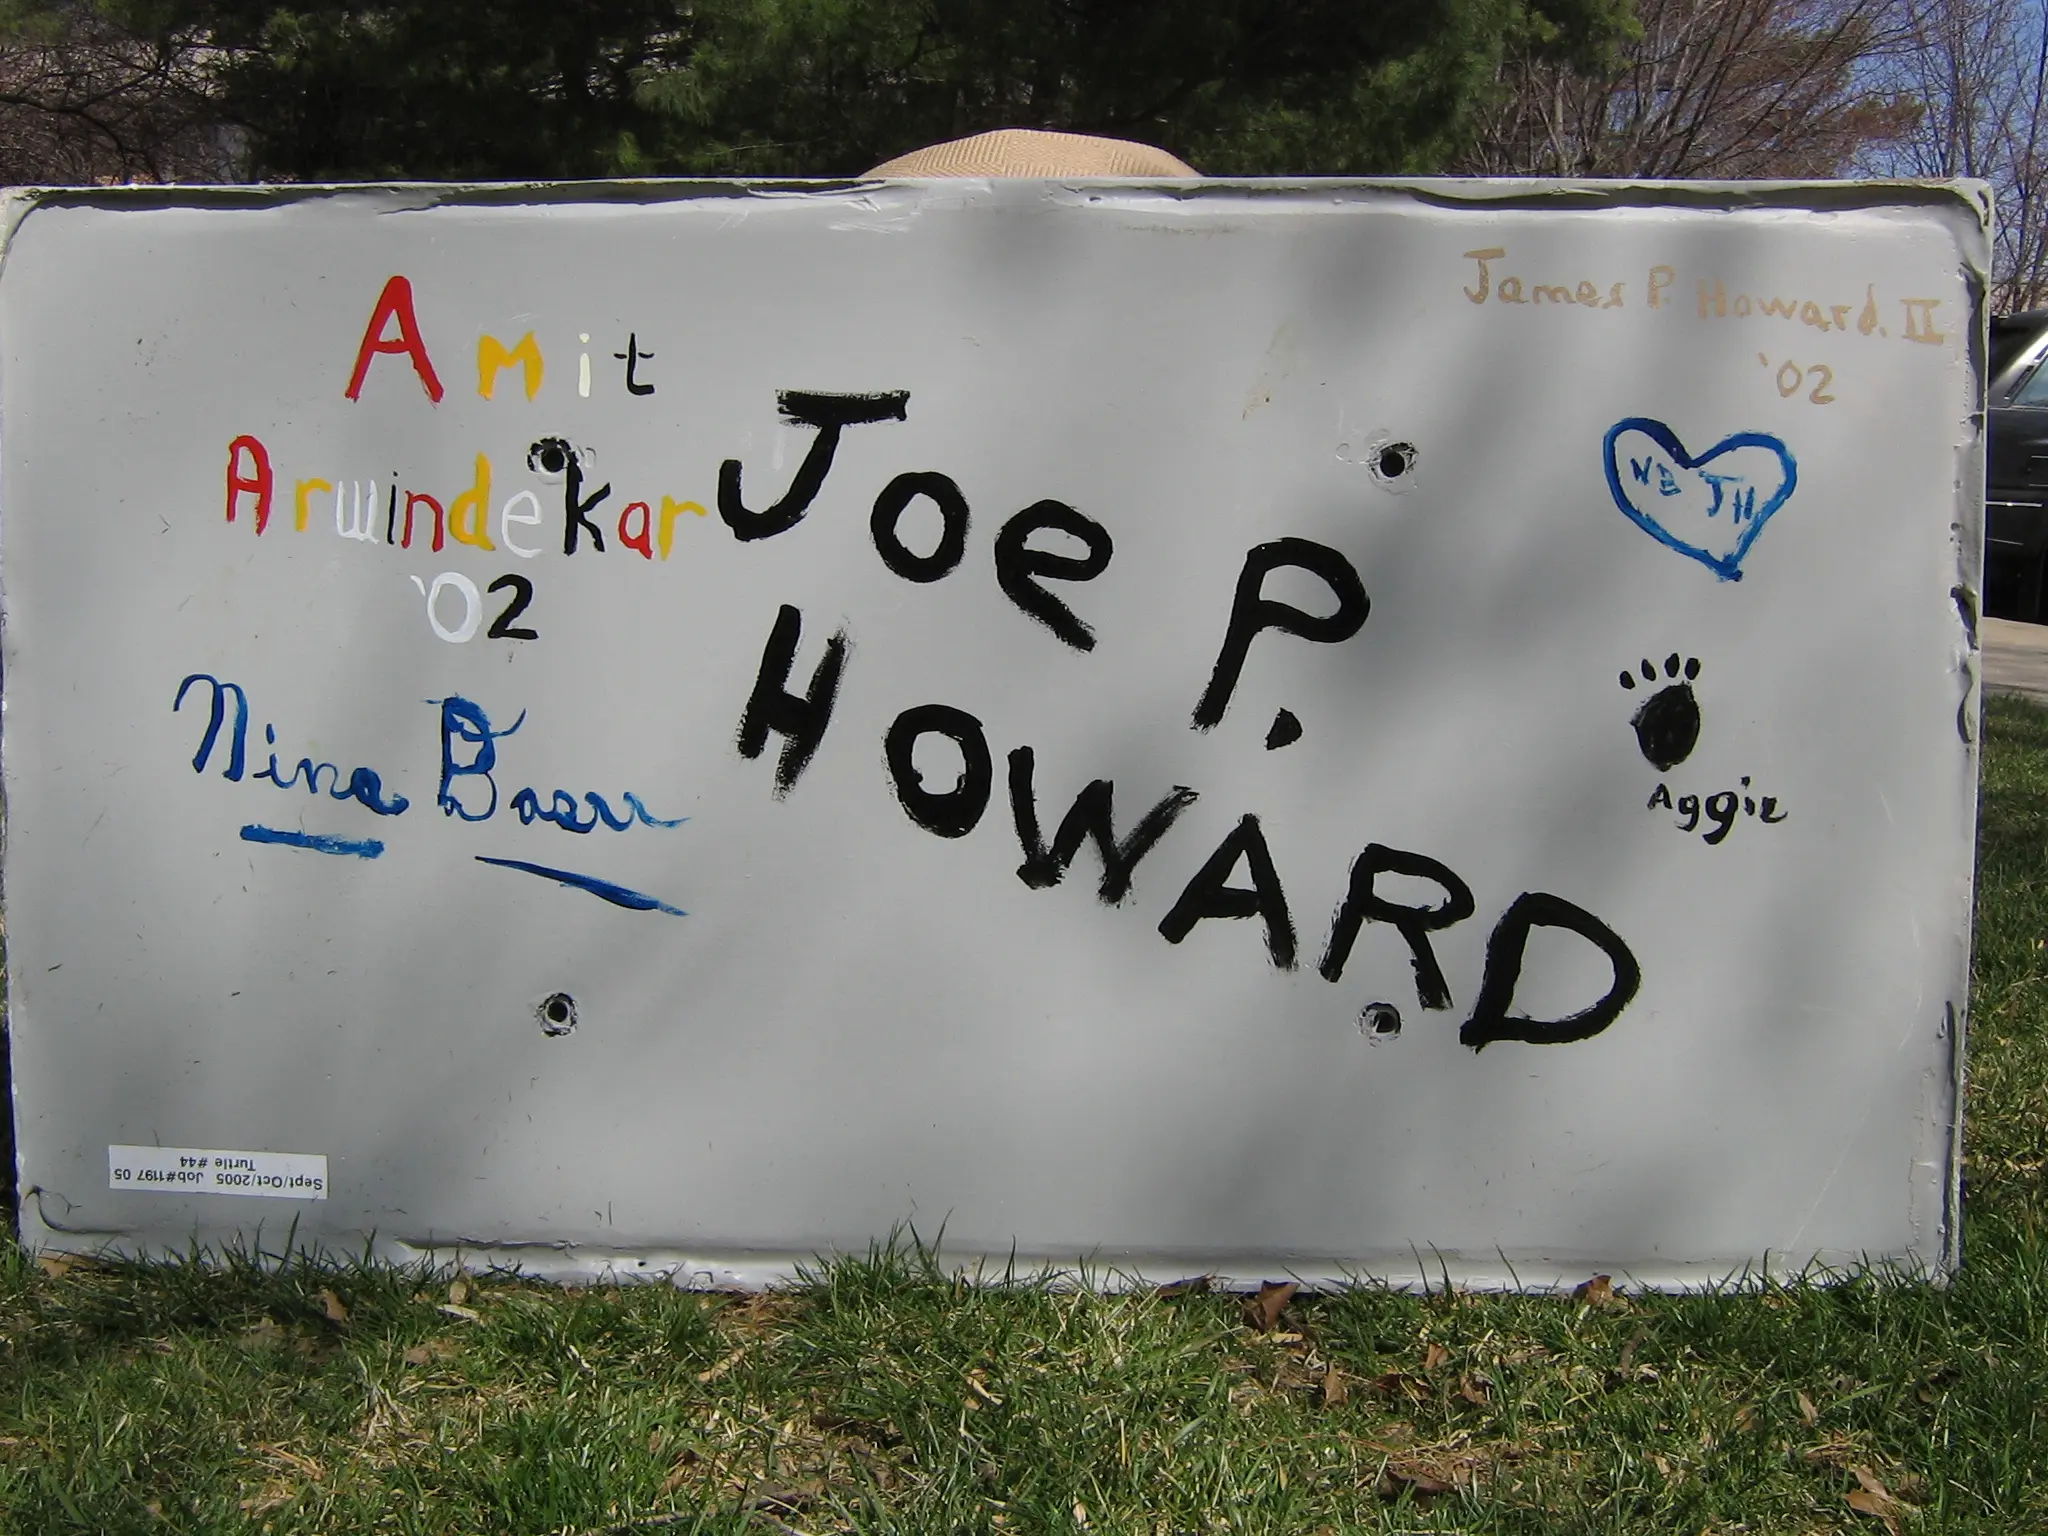 Amit
Arwindekar
'02
Nina Basu
Joe P.
HOWARD
James P. Howard, II
'02
NB JH
Aggie
Sept/Oct/2005 Job#1197 05
Turtle #44